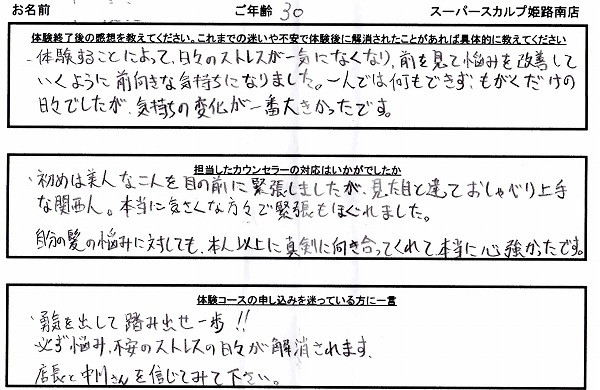 お名前 ご年齢 30 スーパースカルプ姫路南店
体験終了後の感想を教えてください。これまでの迷いや不安で体験後に解消されたことがあれば具体的に教えてください
・体験することによって、日々のストレスが一気になくなり、前を見て悩みを改善して
いくように前向きな気持ちになりました。一人では何もできず、もがくだけの
日々でしたが、気持ちの変化が一番大きかったです。
担当したカウンセラーの対応はいかがでしたか
・初めは美人な二人を目の前に緊張しましたが、見た目と違ておしゃべり上手
な関西人。本当に気さくな方々で緊張もほぐれました。
自分の髪の悩みに対しても、本人以上に真剣に向き合ってくれて、本当に心強かったです。
体験コースの申し込みを迷っている方に一言
・勇気を出して踏み出せ一歩!!
必ず悩み、不安のストレスの日々が解消されます。
店長と中川さんを信じてみて下さい。